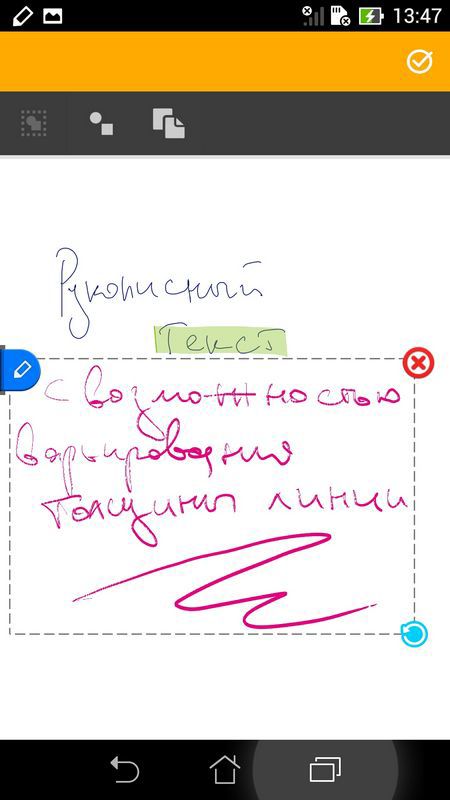 13:47
Рукописный
Текст
с возможностью
варьирования
толщины линии